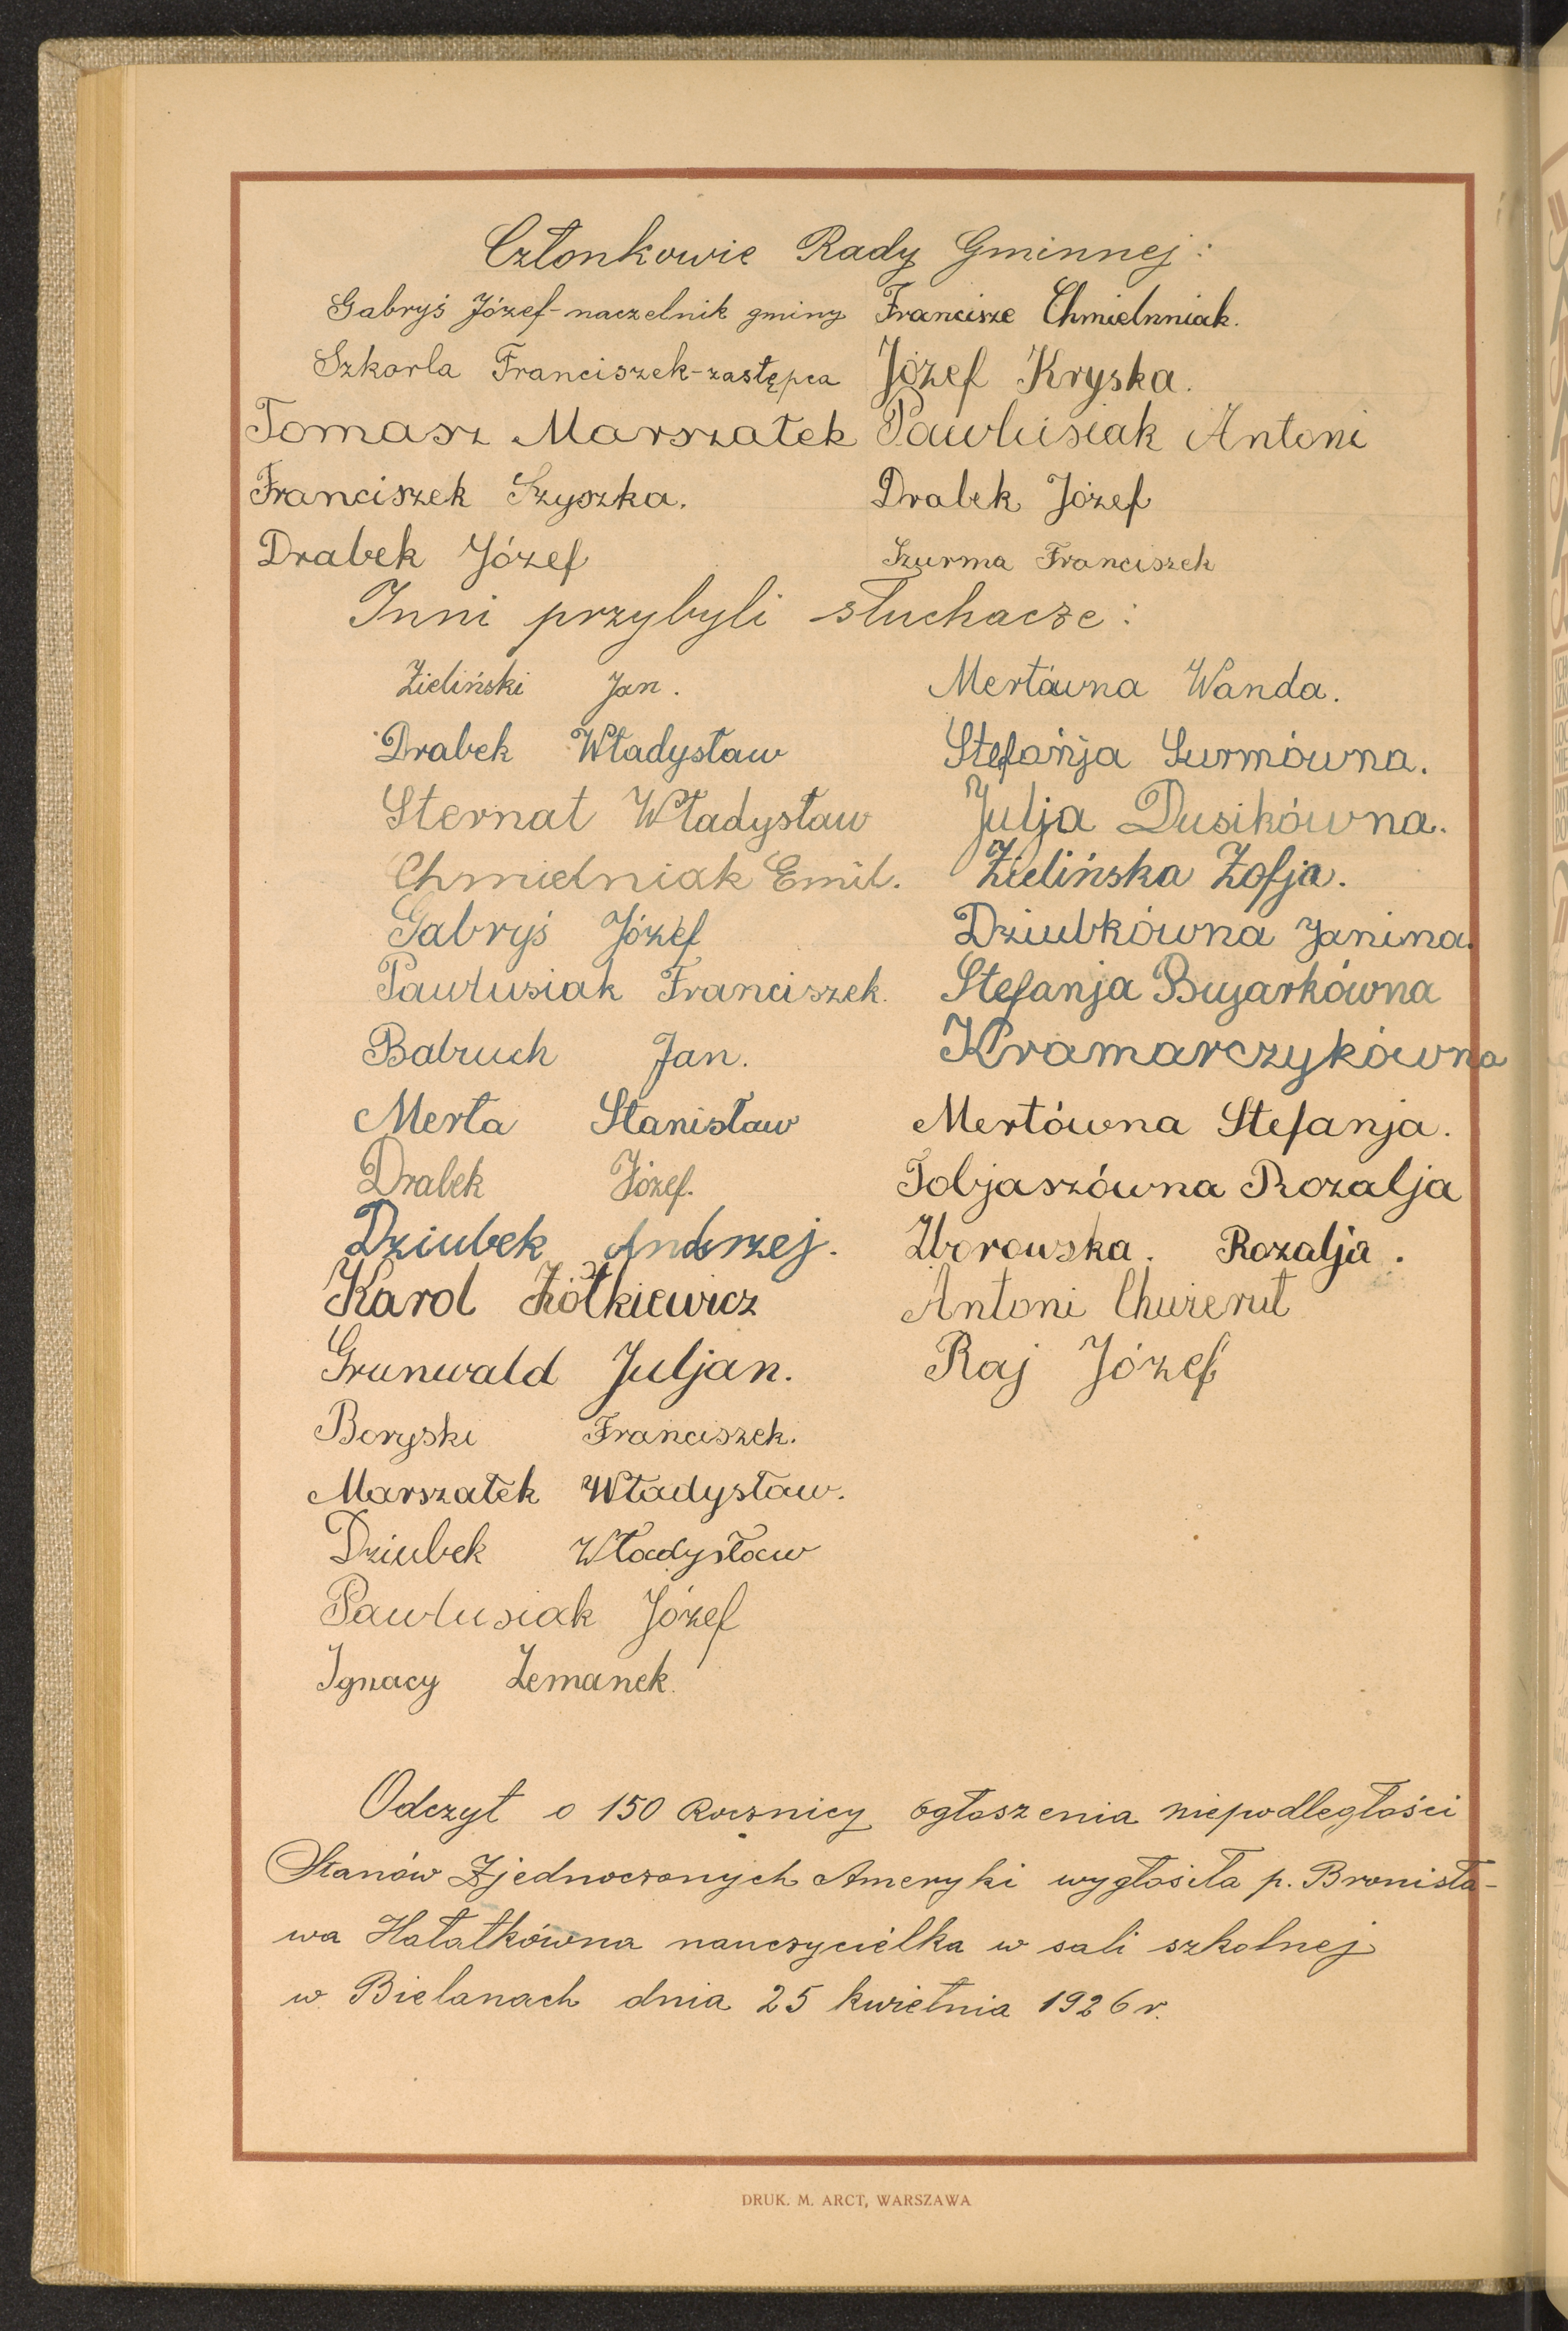 Członkowie Rady Gminnej:
Gabryś Józef-naczelnik gminy Francisze Chmielnniak.
Szkorla Franciszek-zastępca Józef Kryska.
Tomasz Marszałek Pawlusiak Antoni
Franciszek Szyszka. Drabek Józef
Drabek Józef Szurma Franciszek
Inni przybyli słuchacze:
Zieliński Jan. Mertówna Wanda.
Drabek Władysław Stefańja Surmówna.
Sternat Władysław Julja Dusikówna.
Chmielniak Emil. Zielińska Zofja.
Gabryś Józef Dziubkówna Janina.
Pawlusiak Franciszek. Stefanja Bujarkówna
Babruch Jan. Kramarczykówna
Merta Stanisław Mertówna Stefanja.
Drabek Józef. Tobjaszówna Rozalja
Dziubek Andrzej. Zborowska. Rozalja.
Karol Żółkiewicz Antoni
Grunwald Juljan. Raj Józef
Boryski Franciszek.
Marszałek Władysław.
Dziubek Władysław
Pawlusiak Józef
Ignacy Zemanek.
Odczyt o 150 Rocznicy ogłoszenia niepodległości
Stanów Zjednoczonych Ameryki wygłosiła p. Bronisła-
wa Hałatkówna nauczycielka w sali szkolnej
w Bielanach dnia 25 kwietnia 1926 r.
DRUK. M. ARCT, WARSZAWA